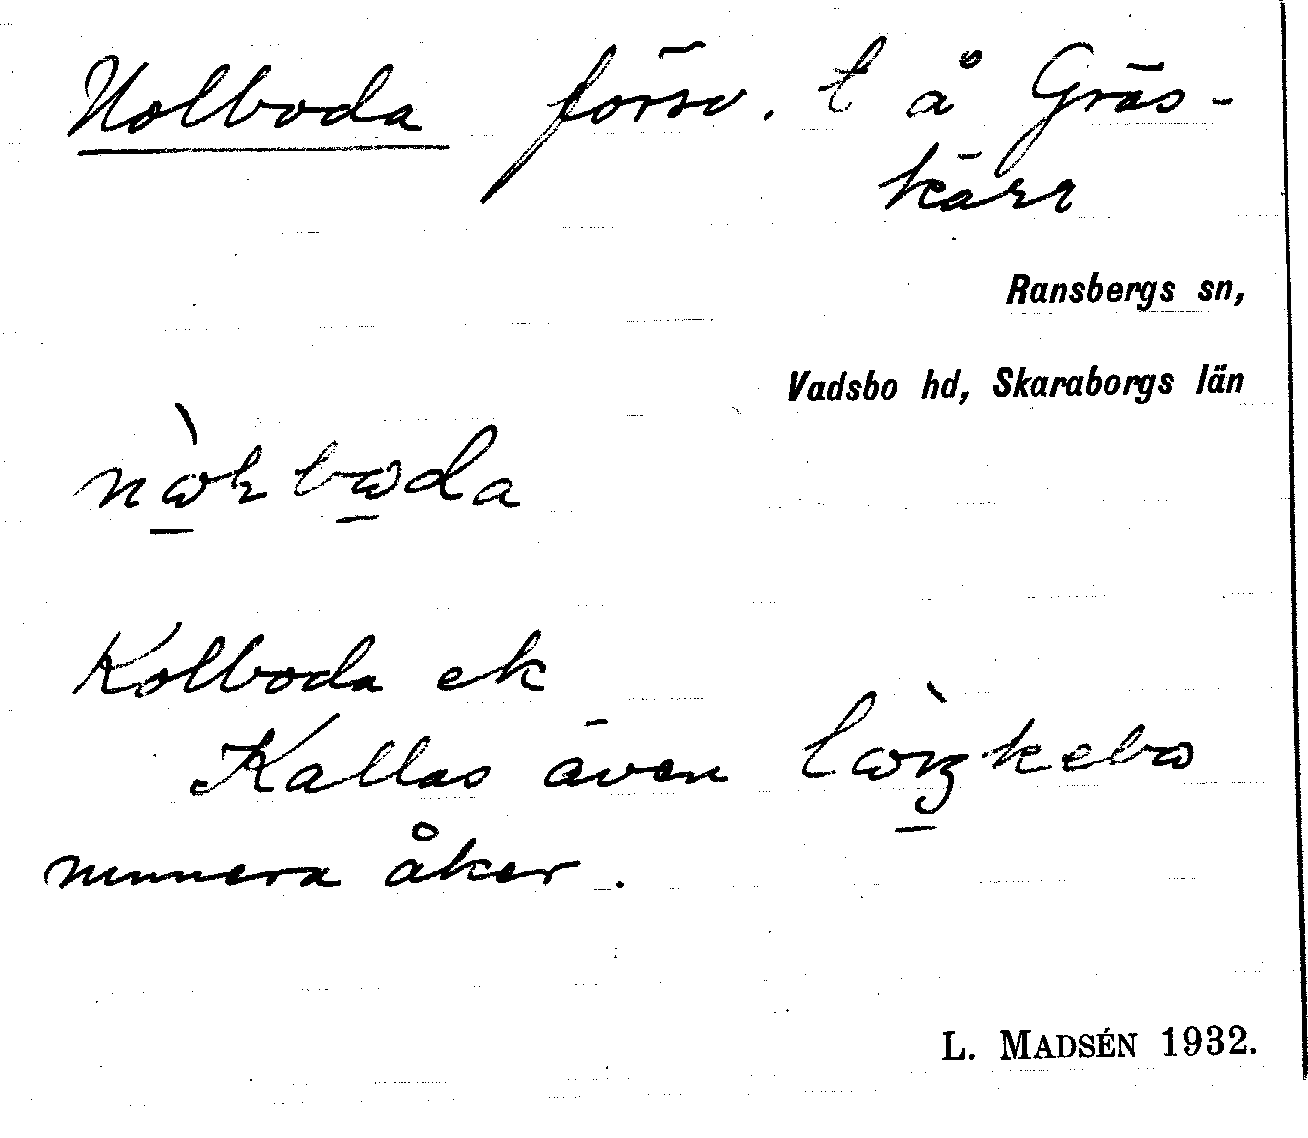 Nolboda försv. t å Gräs-
kärr
Ransbergs sn,
Vadsbo hd, Skaraborgs län
Kolboda ek
Kallas även
numera åker.
L. MADSÉN 1932.